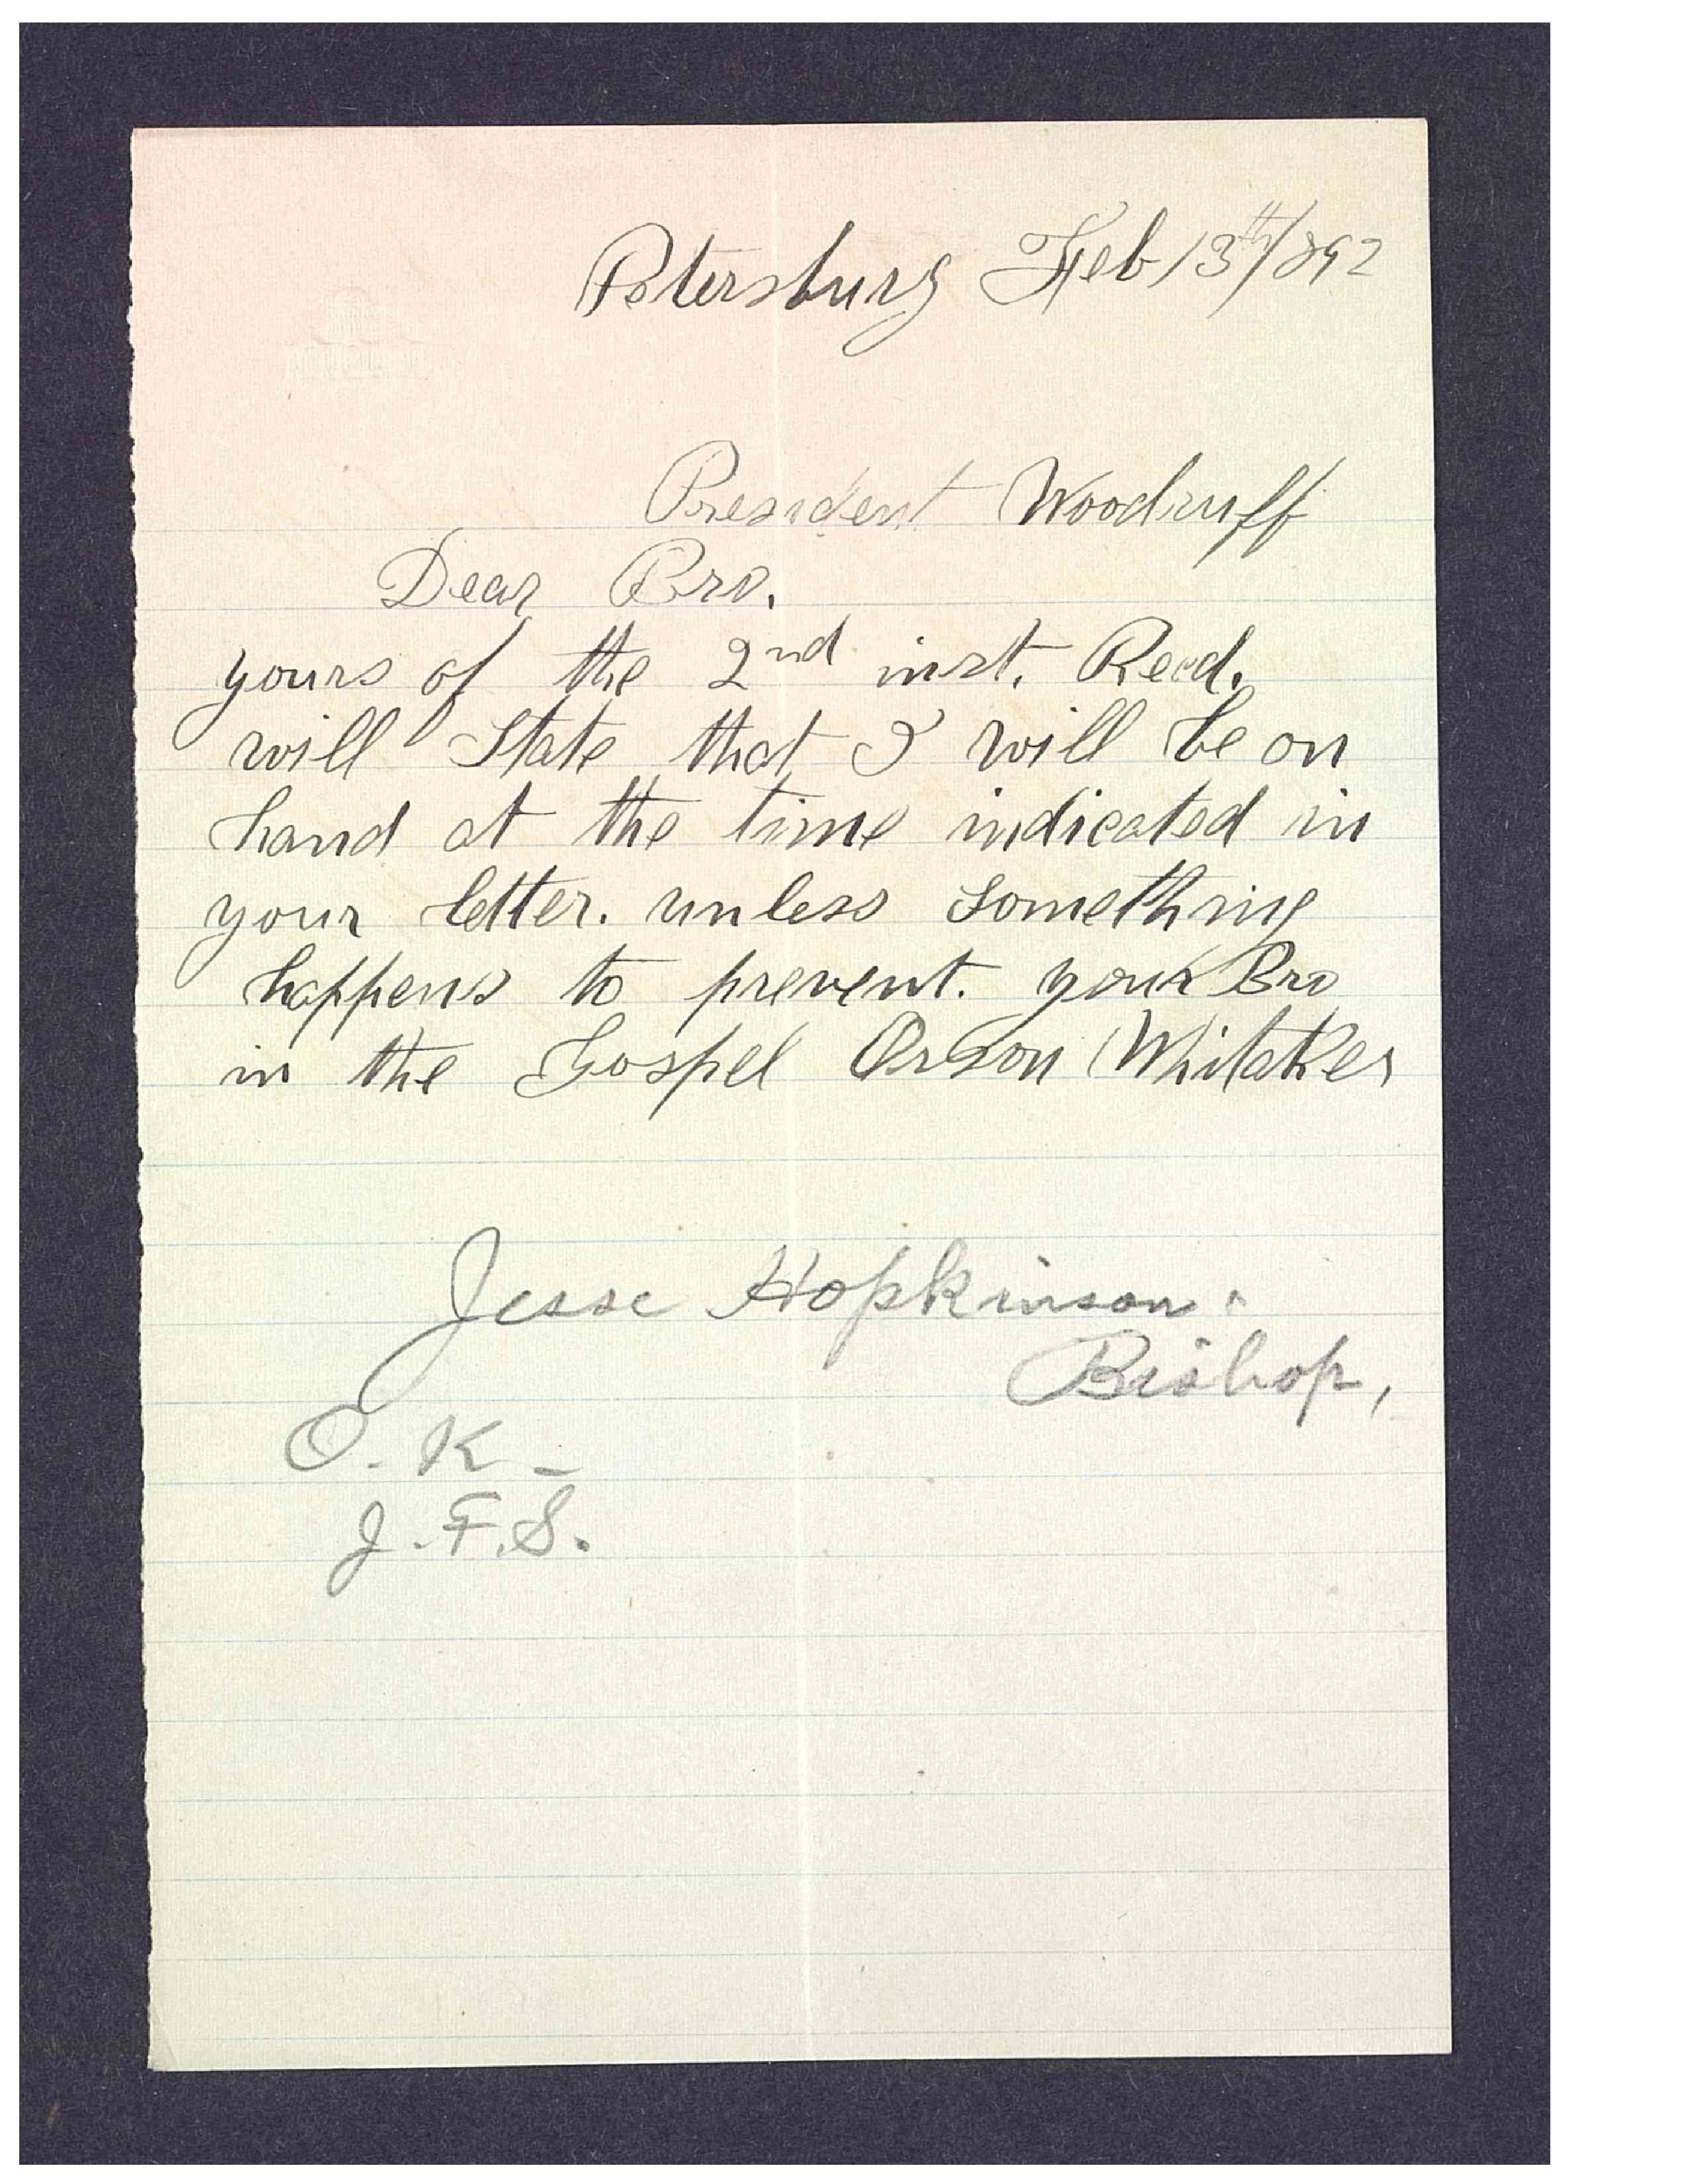 Petersburg Feb 13th/892
President Woodruff
Dear Bro.
yours of the 2nd inst. Recd.
will State that I will be on
hand at the time indicated in
your letter. unless something
happens to prevent. your Bro
in the Gospel Orson Whitaker
Jesse Hopkinson.
Bishop,
O. K-
J. F. S.